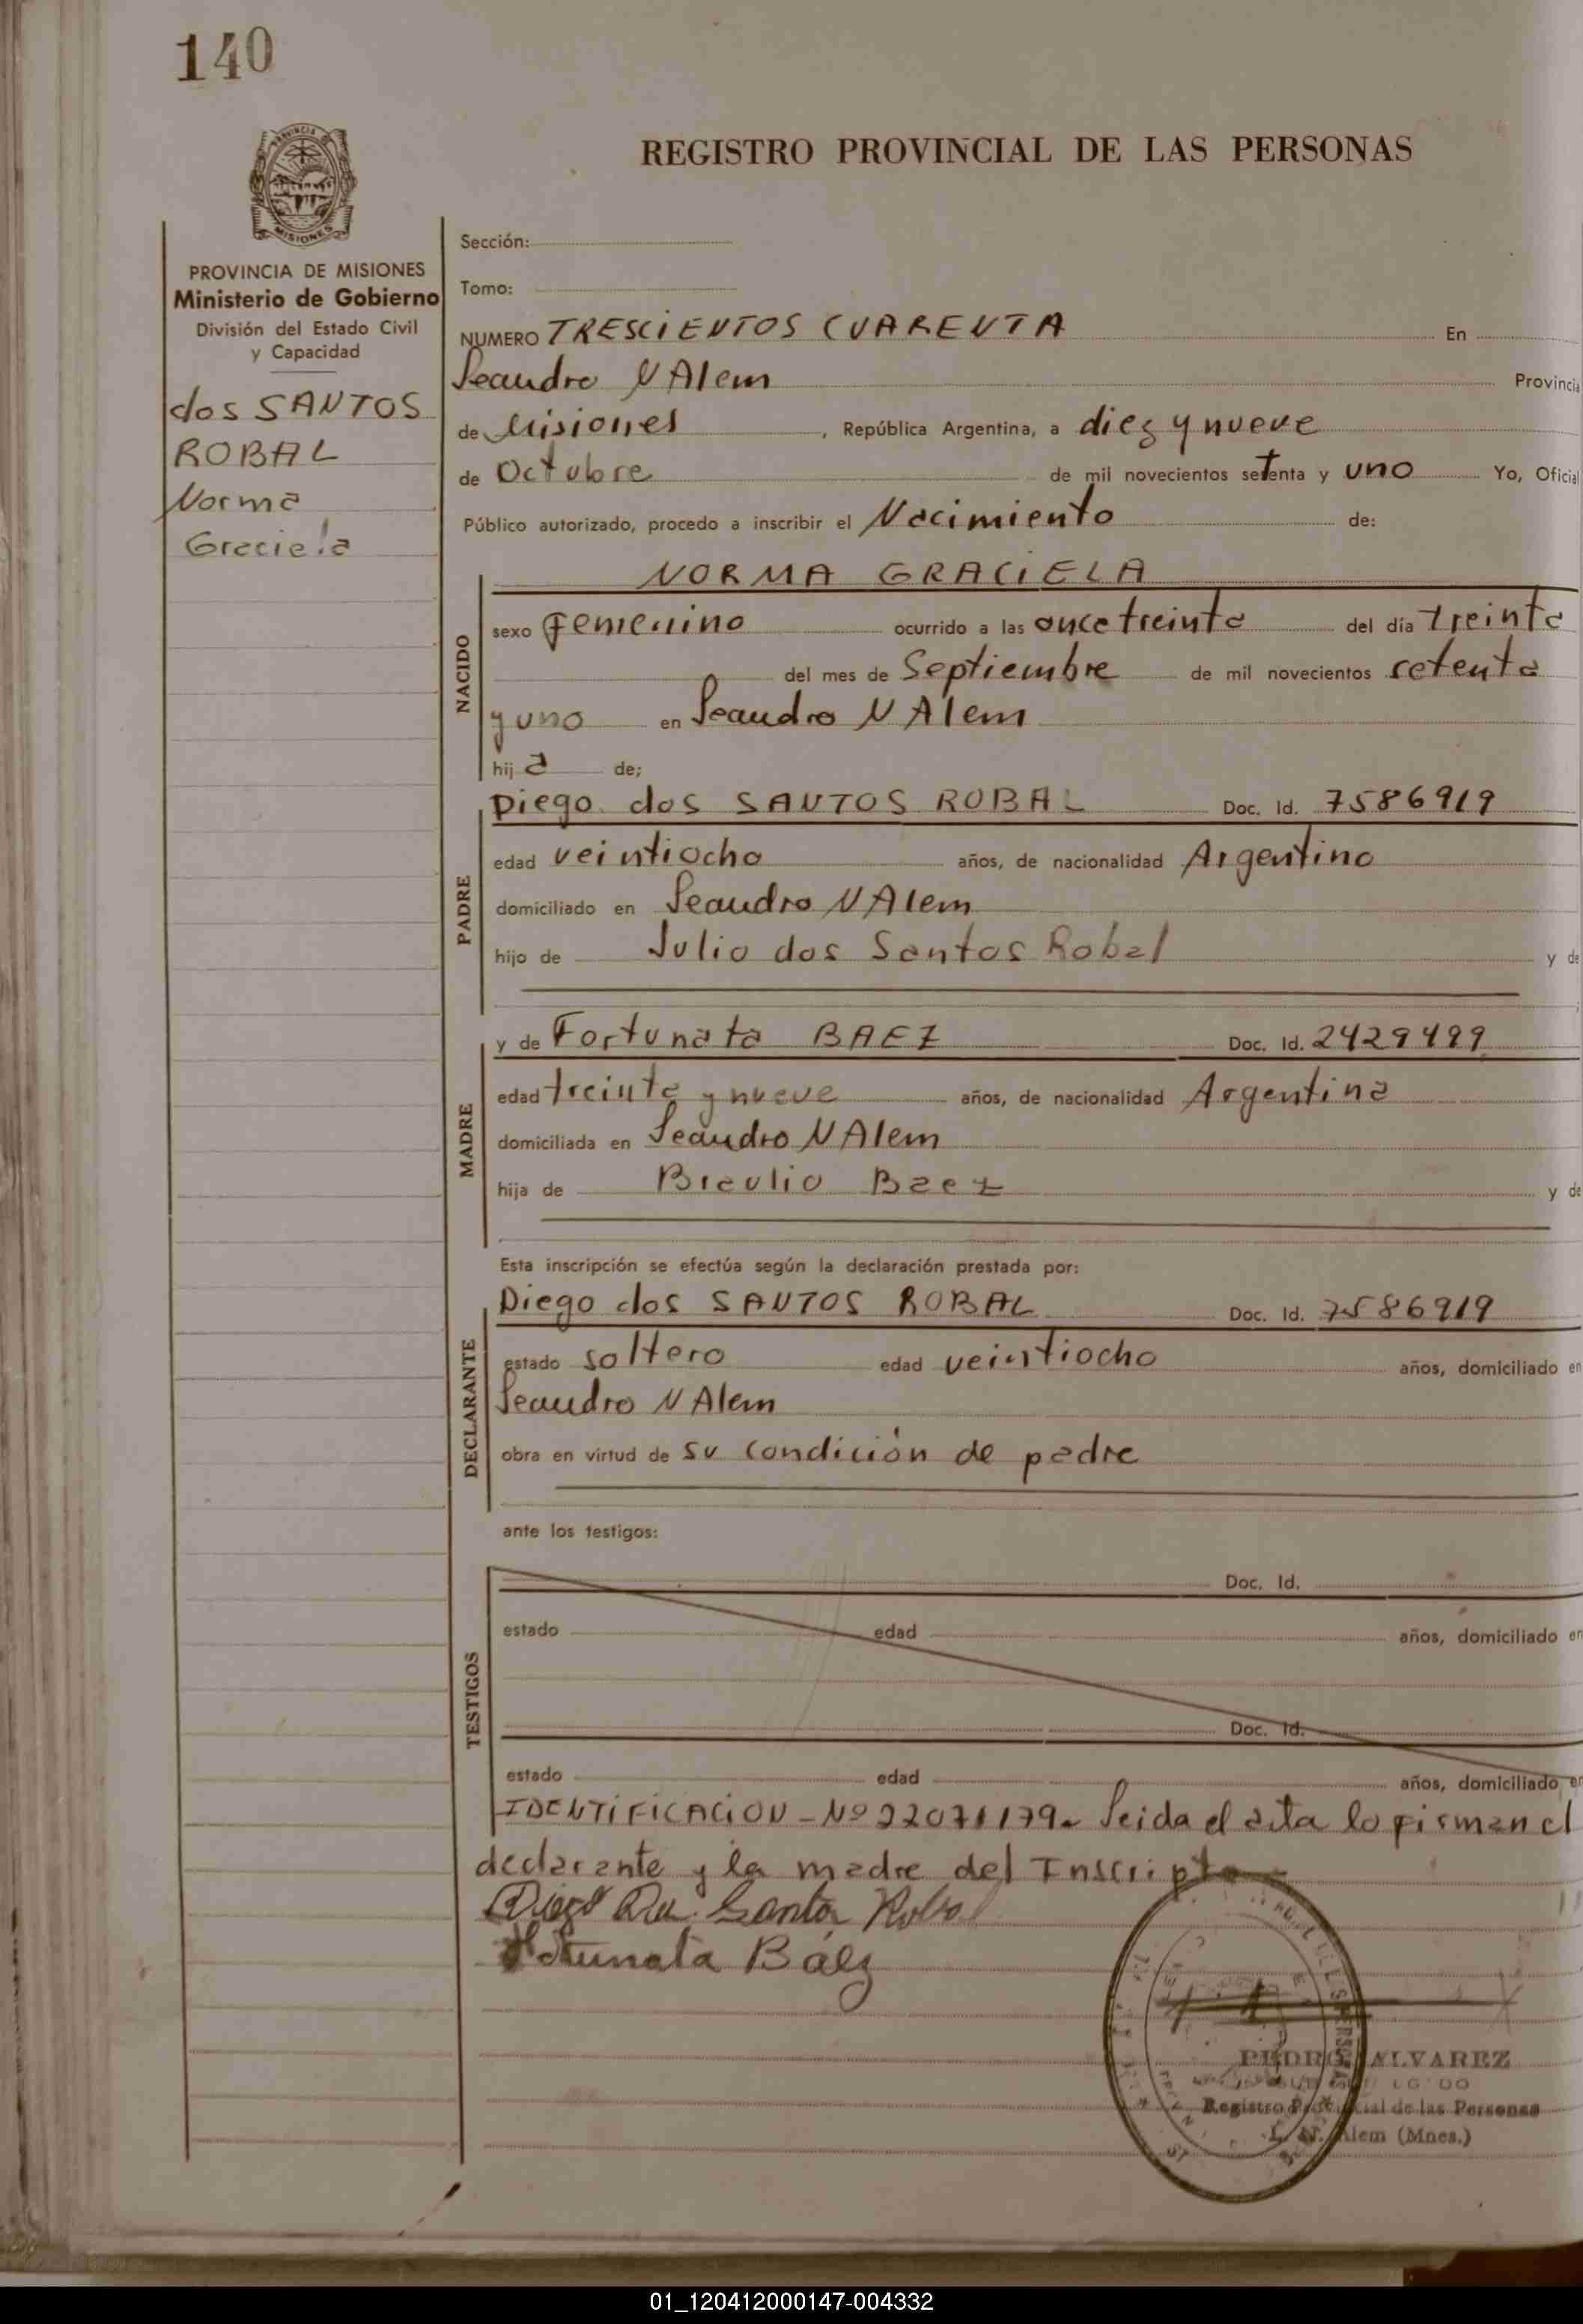 140
PROVINCIA DE MISIONES
Ministerio de Gobierno
División del Estado Civil
y Capacidad
dos SANTOS
ROBAL
Norma
Graciela
REGISTRO PROVINCIAL DE LAS PERSONAS
Sección:
Tomo:
NUMERO TRESCIENTOS CUARENTA En
Leandro N Alem Provincia
de Misiones, República Argentina, a diez y nueve
de Octubre de mil novecientos setenta y uno Yo, Oficial
Público autorizado, procedo a inscribir el Nacimiento de:
NACIDO
NORMA GRACIELA
sexo femenino ocurrido a las once treinta del día treinta
del mes de Septiembre de mil novecientos setenta
y uno en Leandro N Alem
hija de;
PADRE
Diego dos SANTOS ROBAL Doc. Id. 7586919
edad veintiocho años, de nacionalidad Argentino
domiciliado en Leandro N Alem
hijo de Julio dos Santos Robal y de
MADRE
y de Fortunata BAEZ Doc. Id. 2429499
edad treinta y nueve años, de nacionalidad Argentina
domiciliada en Leandro N Alem
hija de Braulio Baez y de
Esta inscripción se efectúa según la declaración prestada por:
DECLARANTE
Diego dos SANTOS ROBAL Doc. Id. 7586919
estado soltero edad veintiocho años, domiciliado en
Leandro N Alem
obra en virtud de su condición de padre
ante los testigos:
TESTIGOS
Doc. Id.
estado edad años, domiciliado en
Doc. Id.
estado edad años, domiciliado en
IDENTIFICACION - Nº 22071179. Leida el acta lo firman el
declarante y la madre del Inscripto
Diego Santos Robal
Fortunata Báez
PEDRO ALVAREZ
Registro Provincial de las Personas
L. N. Alem (Mnes.)
01_120412000147-004332